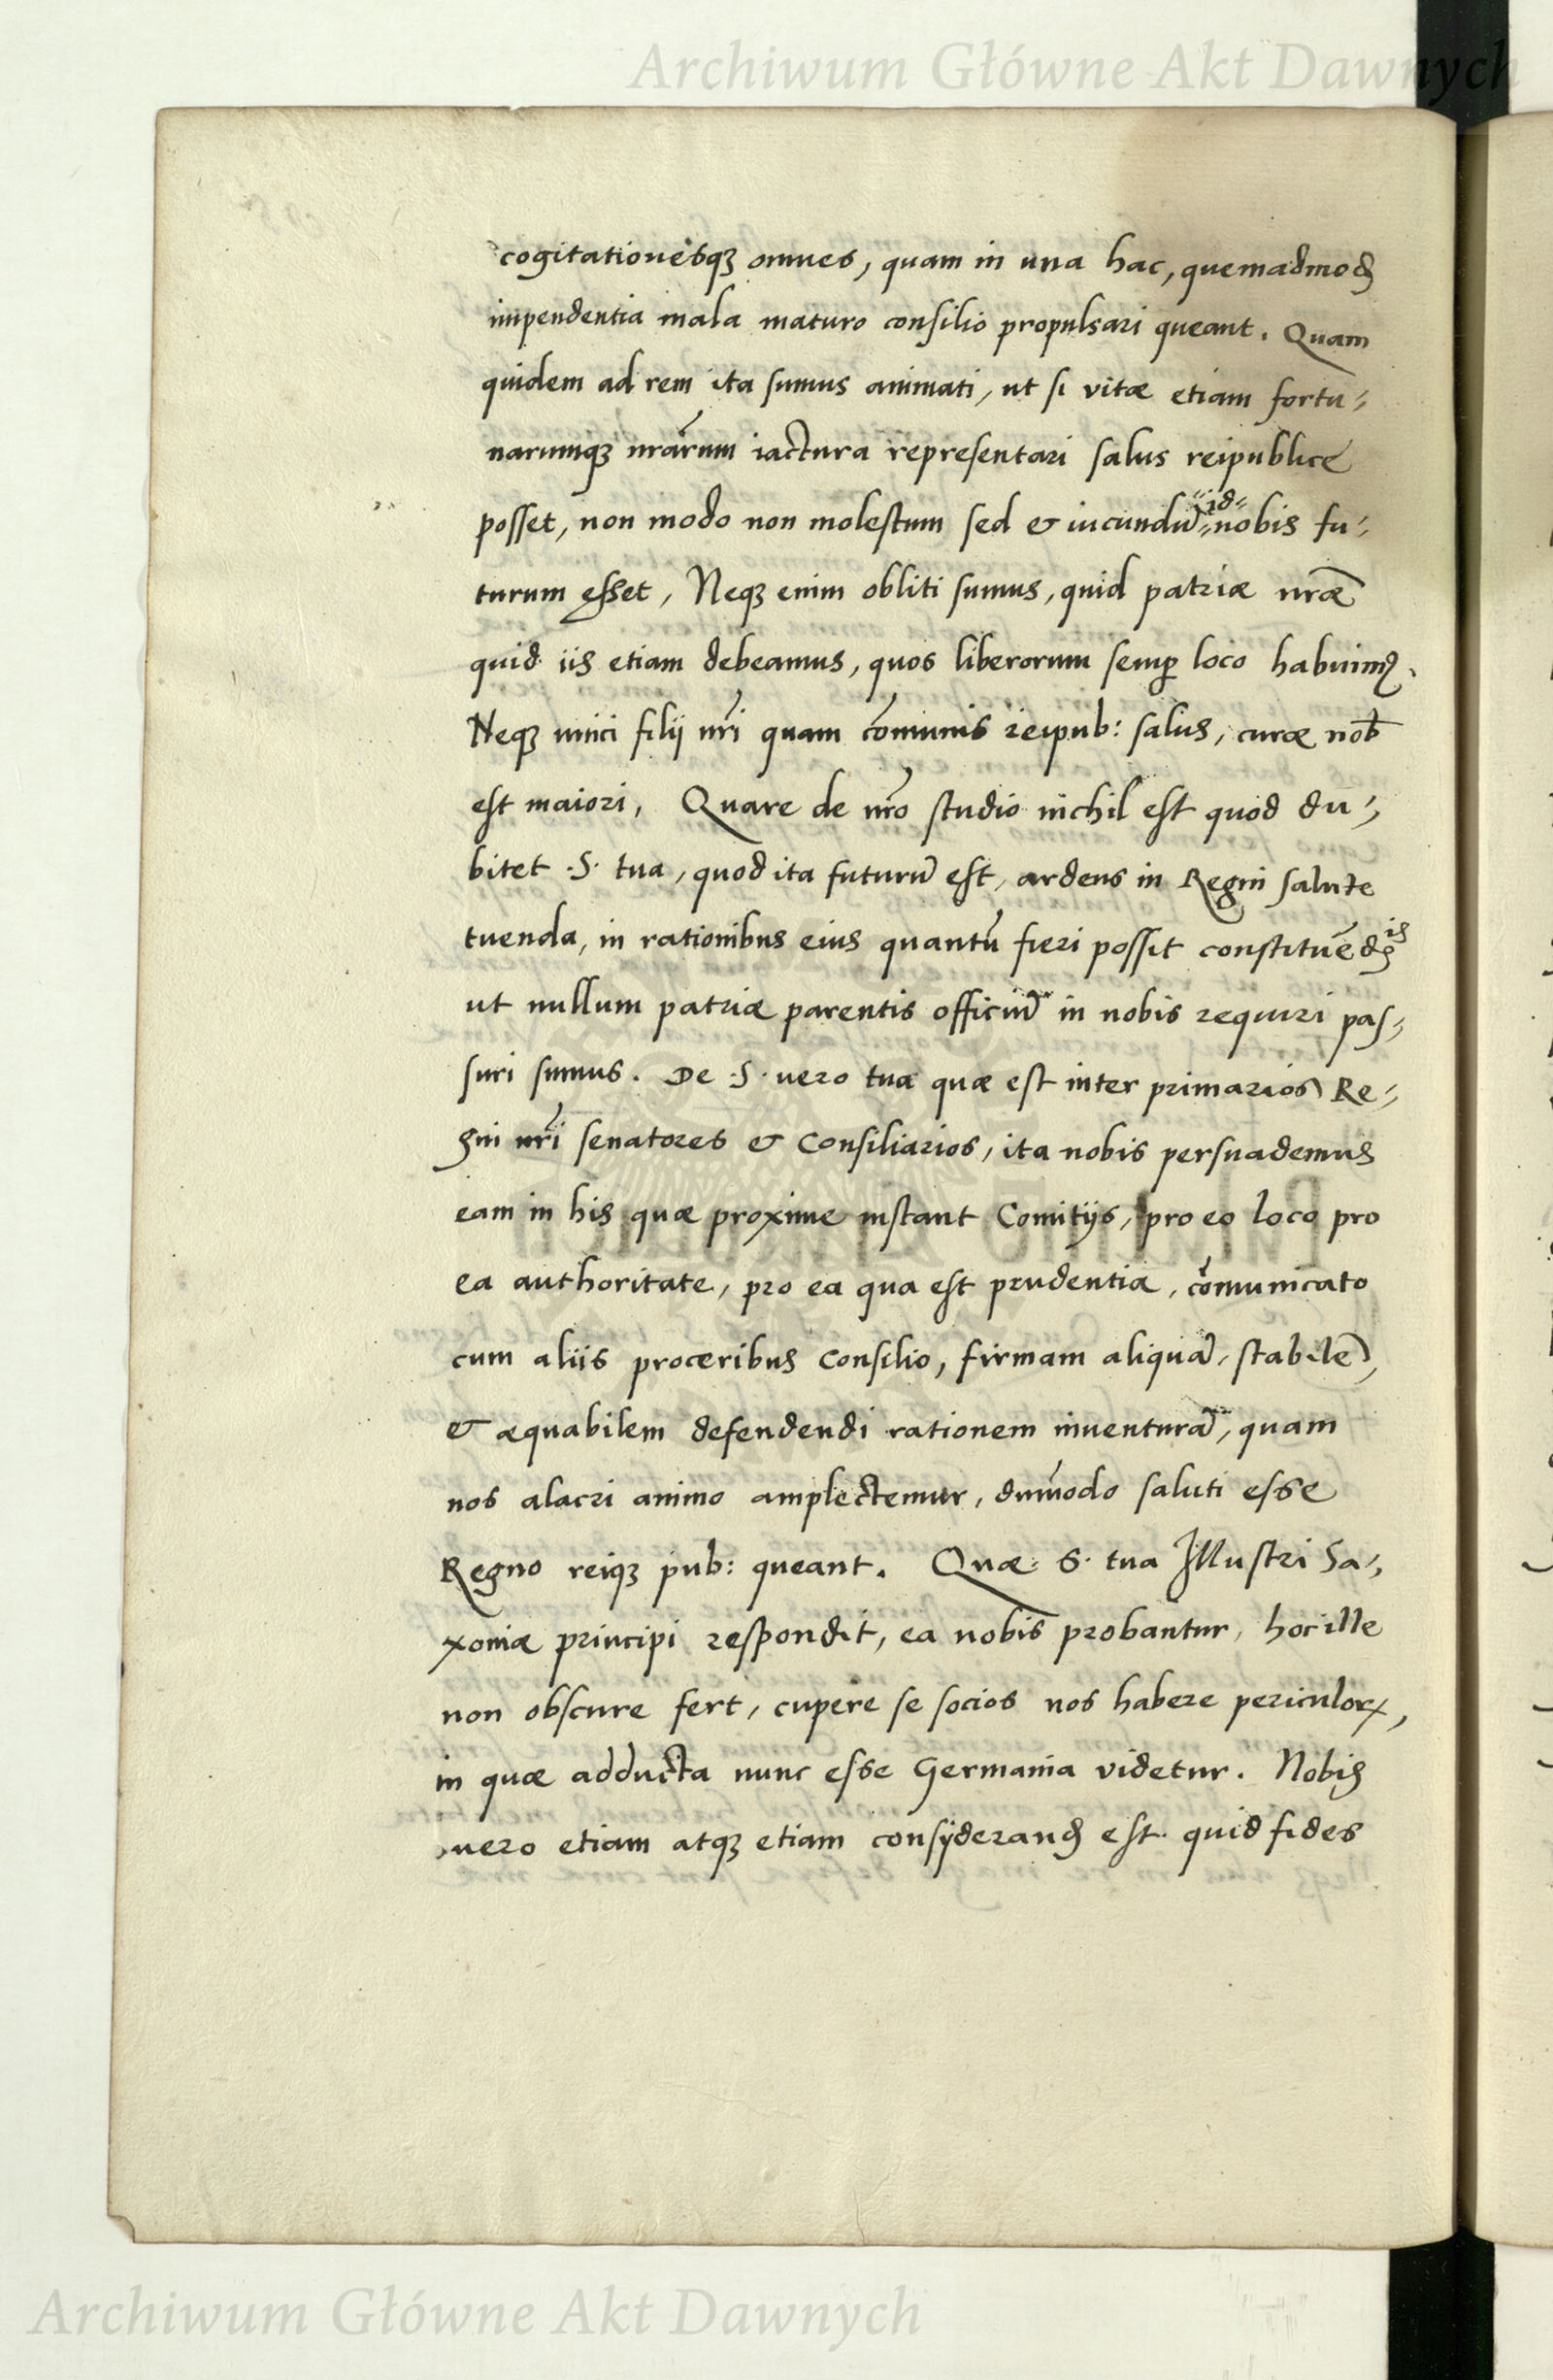 Archiwum Główne Akt Dawnych
cogitationesqꝫ omnes, quam in una hac, quemadmodꝫ
impendentia mala maturo consilio propulsari queant. Quam
quidem ad rem ita sumus animati, ut si vitæ etiam fortu-
narumqꝫ nr̃arum iactura representari salus reipublice
posset, non modo non molestum sed & iucundũ id nobis fu-
turum esset, Neqꝫ enim obliti sumus, quid patriæ nr̃æ
quid iis etiam debeamus, quos liberorum semꝑ loco habuimꝰ.
Neqꝫ unici filij nr̃i quam cõmunis reipub: salus, curæ nob̃
est maiori, Quare de nr̃o studio nichil est quod du-
bitet .S. tua, quod ita futurũ est, ardens in Regni salute
tuenda, in rationibus eius quantũ fieri possit constituẽdis
ut nullum patriæ parentis officiũ in nobis requiri pas-
suri sumus. De .S. vero tua quæ est inter primarios Re-
gni nr̃i senatores & Consiliarios, ita nobis persuademus
eam in his quæ proxime instant Comitijs, pro eo loco pro
ea authoritate, pro ea qua est prudentia, cõmunicato
cum aliis proceribus consilio, firmam aliquã, stabilẽ,
& æquabilem defendendi rationem inventurã, quam
nos alacri animo amplectemur, dum̃odo saluti esse
Regno reiqꝫ pub: queant. Quæ S. tua Illustri Sa-
xoniæ principi respondit, ea nobis probantur, hoc ille
non obscure fert, cupere se socios nos habere periculoꝝ,
in quæ adducta nunc esse Germania videtur. Nobis
vero etiam atqꝫ etiam consÿderandꝫ est quid fides
Archiwum Główne Akt Dawnych